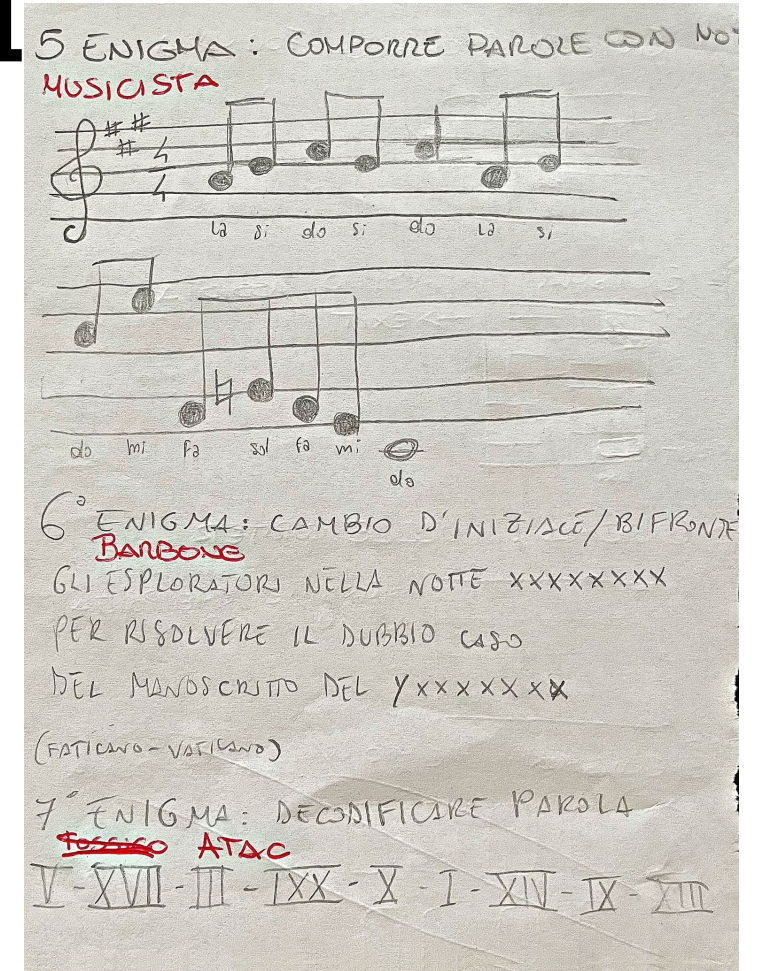 5 ENIGMA: COMPORRE PAROLE CON NOT
MUSICISTA
La si do si do La si
do mi fa sol fa mi
do
6° ENIGMA: CAMBIO D'INIZIALE/BIFRONTE
BARBONE
GLI ESPLORATORI NELLA NOTTE XXXXXXXX
PER RISOLVERE IL DUBBIO CASO
DEL MANOSCRITTO DEL YXXXXXXX
(FATICANO-VATICANO)
7° ENIGMA: DECODIFICARE PAROLA
ATAC
V-XVII-III-IXX-X-I-XIV-IX-XIII